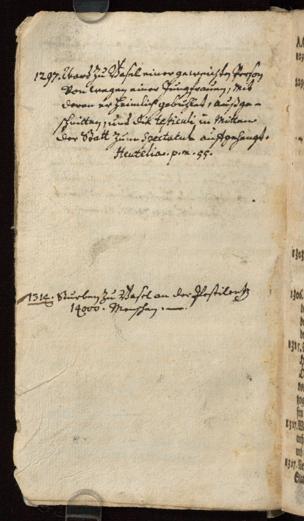 1297. Ward zu Basel einer gewissen Person
von wegen einer Jungfrauen, mit
deren er heimlich gebuhlet, ausge-
schnitten, und die testiculi in Mitten
der Statt zum Spectacul aufgehengt.
Heutelia. p. m. 55.
1314. Sturben zu Basel an der Pestilentz
14000. Menschen. —